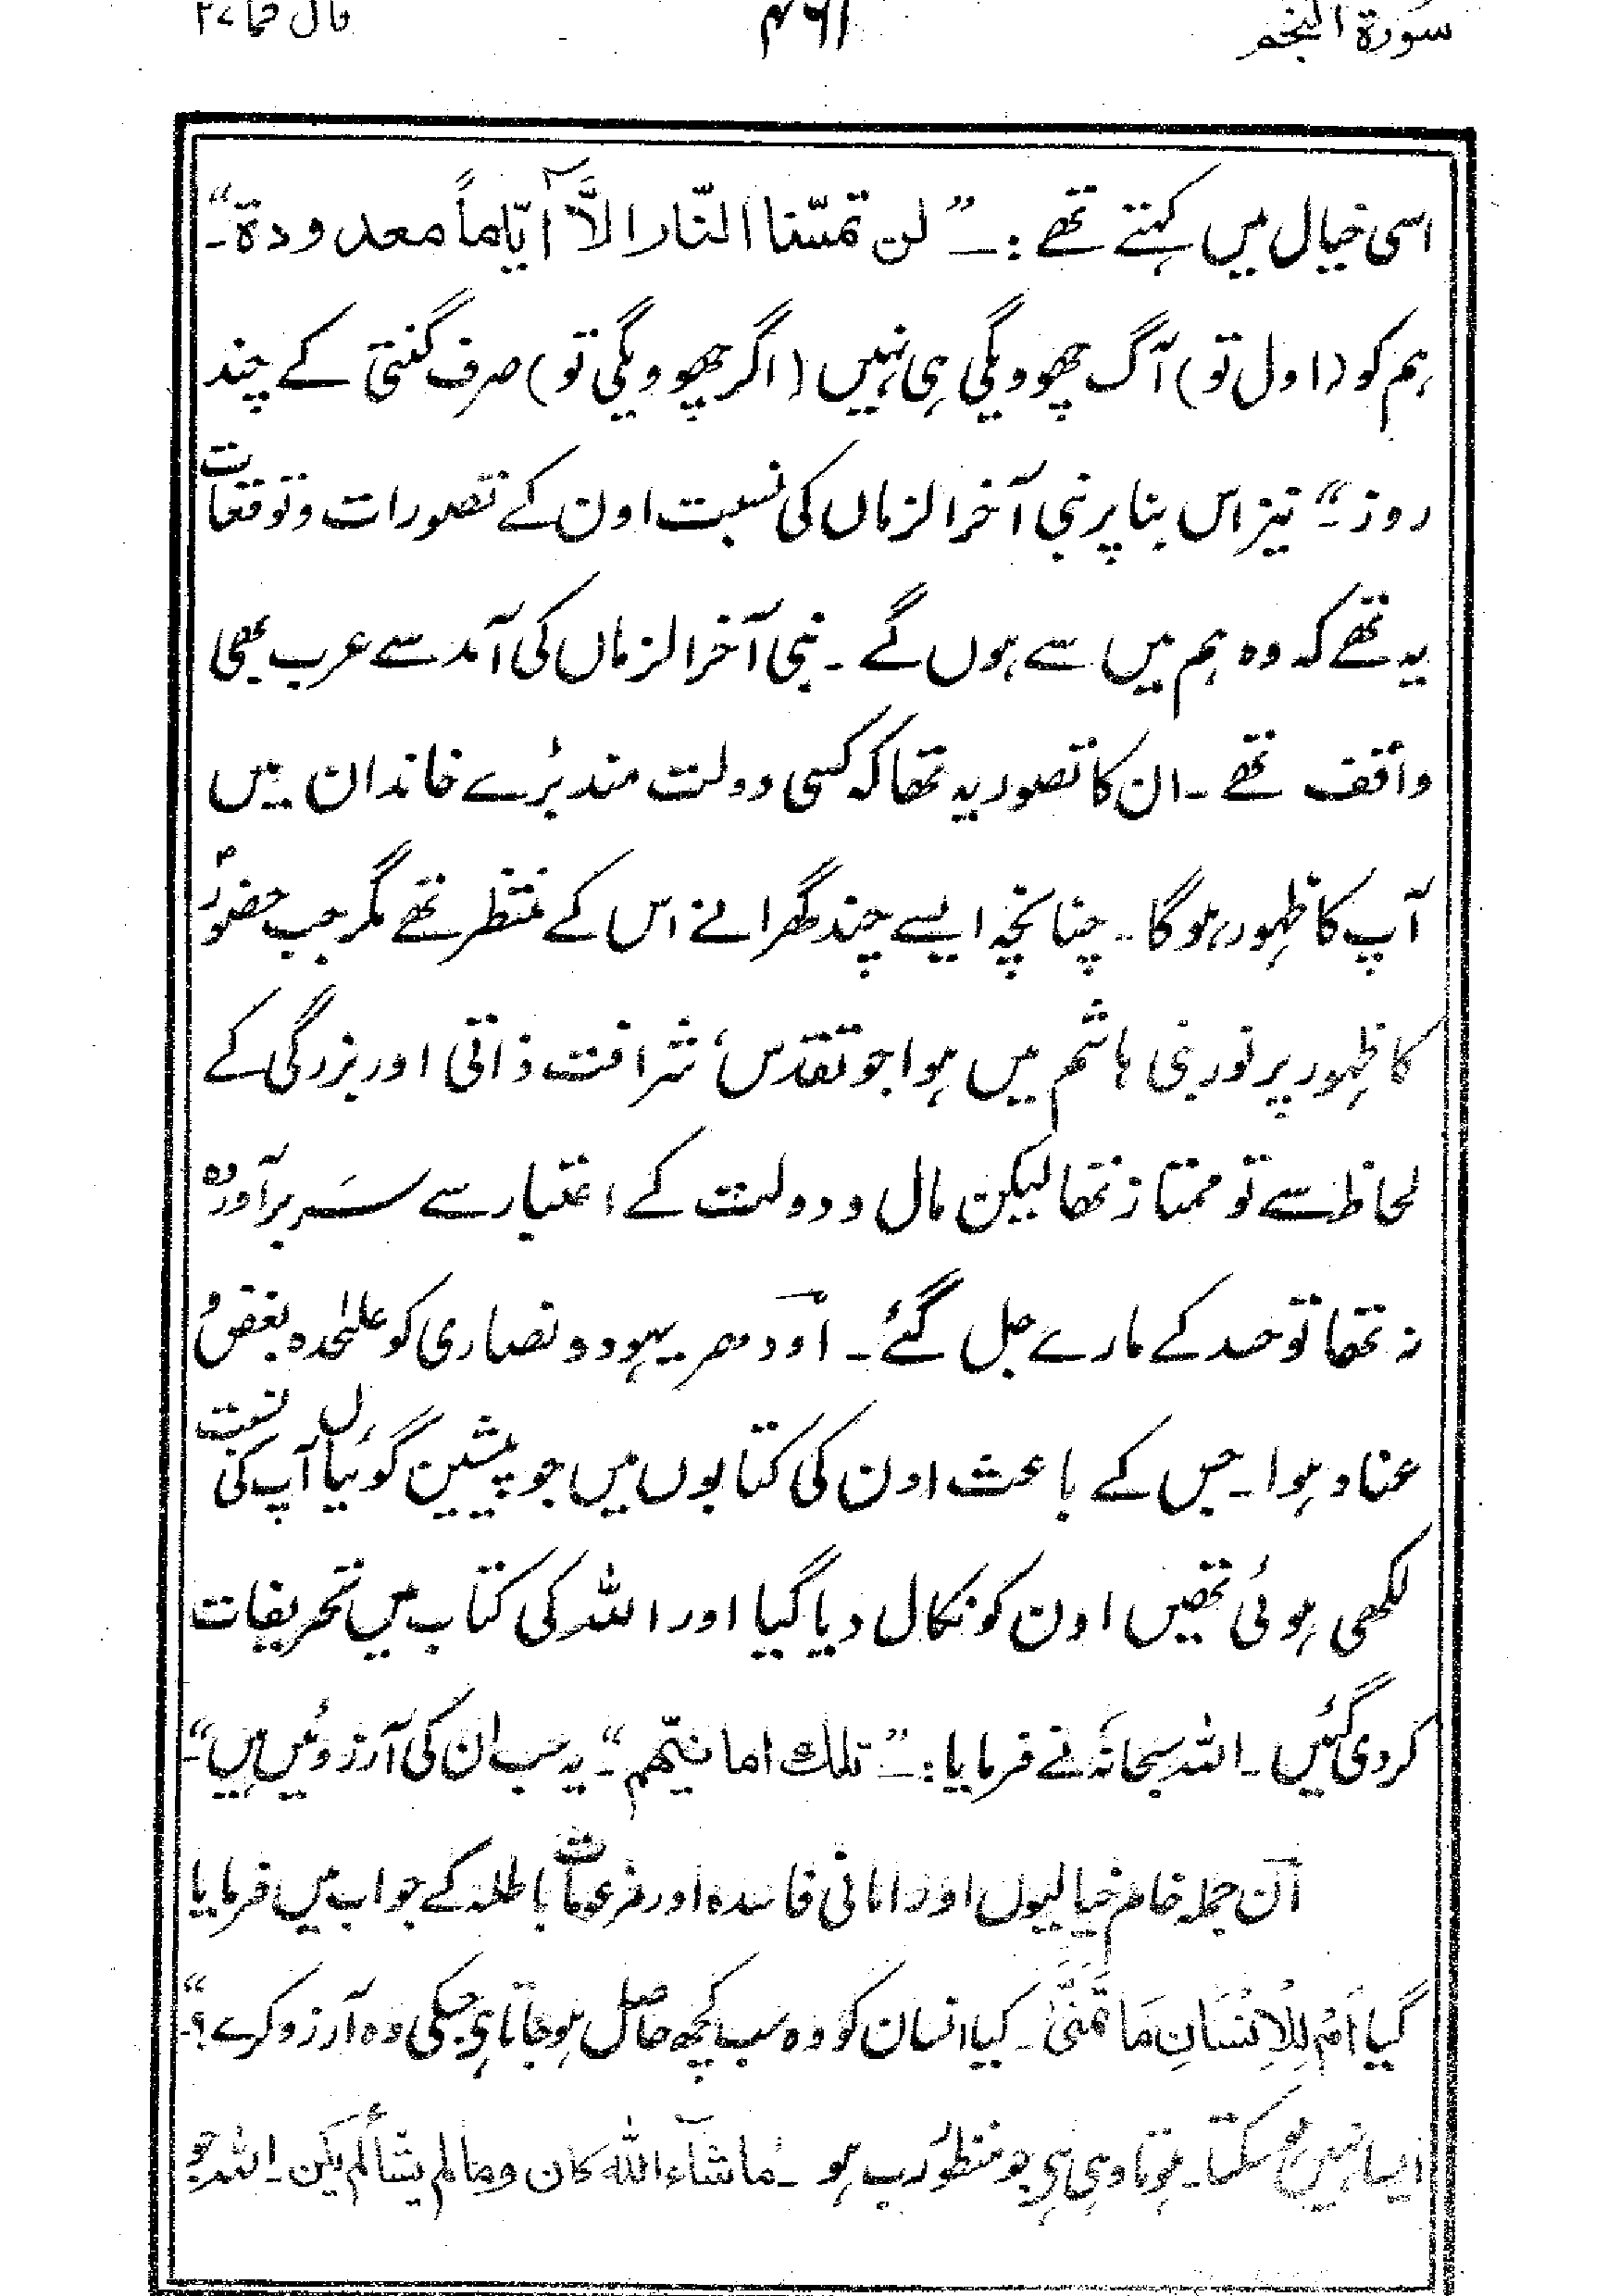 سورة النجم ۴۶۱ قال فما ۲۷
اسی خیال میں کہتے تھے :۔ ”لن تمسّنا النّار الاَّ ایّاماً معدودة۔“
ہم کو (اول تو) آگ چھووگی ہی نہیں (اگر چھوویگی تو) صرف گنتی کے چند
روز۔“ نیز اس بنا پر نبی آخر الزماں کی نسبت اون کے تصورات و توقعات
یہ تھے کہ وہ ہم میں سے ہوں گے ۔ نبی آخر الزماں کی آمد سے عرب بھی
واقف تھے ۔ ان کا تصور یہ تھا کہ کسی دولت مند بڑے خاندان میں
آپ کا ظہور ہوگا ۔ چنانچہ ایسے چند گھرانے اس کے منتظر تھے مگر جب حضورؐ
کا ظہور پر نور بنی ہاشم میں ہوا جو تقدس، شرافت ذاتی اور بزرگی کے
لحاظ سے تو ممتاز تھا لیکن مال و دولت کے اعتبار سے سَر برآوردہ
نہ تھا تو حسد کے مارے جل گئے ۔ اودھر یہود و نصاری کو علیٰحدہ بغض و
عناد ہوا ۔ جس کے باعث اون کی کتابوں میں جو پیشین گوئیاں آپ کی نسبت
لکھی ہوئی تھیں اون کو نکال دیا گیا اور اللہ کی کتاب میں تحریفات
کر دی گئیں ۔ اللہ سبحانہٗ نے فرمایا :۔ ”تلك امانیّهم“۔ یہ سب ان کی آرزوئیں ہیں“۔
ان جملہ خام خیالیوں اور امانی فاسدہ اور مزعومات باطلہ کے جواب میں فرمایا
گیا اَمْ لِلْاِنْسَانِ مَا تَمَنّٰی ۔ کیا انسان کو وہ سب کچھ حاصل ہو جاتا ہی جسکی وہ آرزو کرے؟“۔
ایسا نہیں ہو سکتا ۔ ہوتا وہی ہی جو منظور رب ہو ۔ ما شآء اللہ کان وما لم یشأ لم یکن ۔ اللہ جو